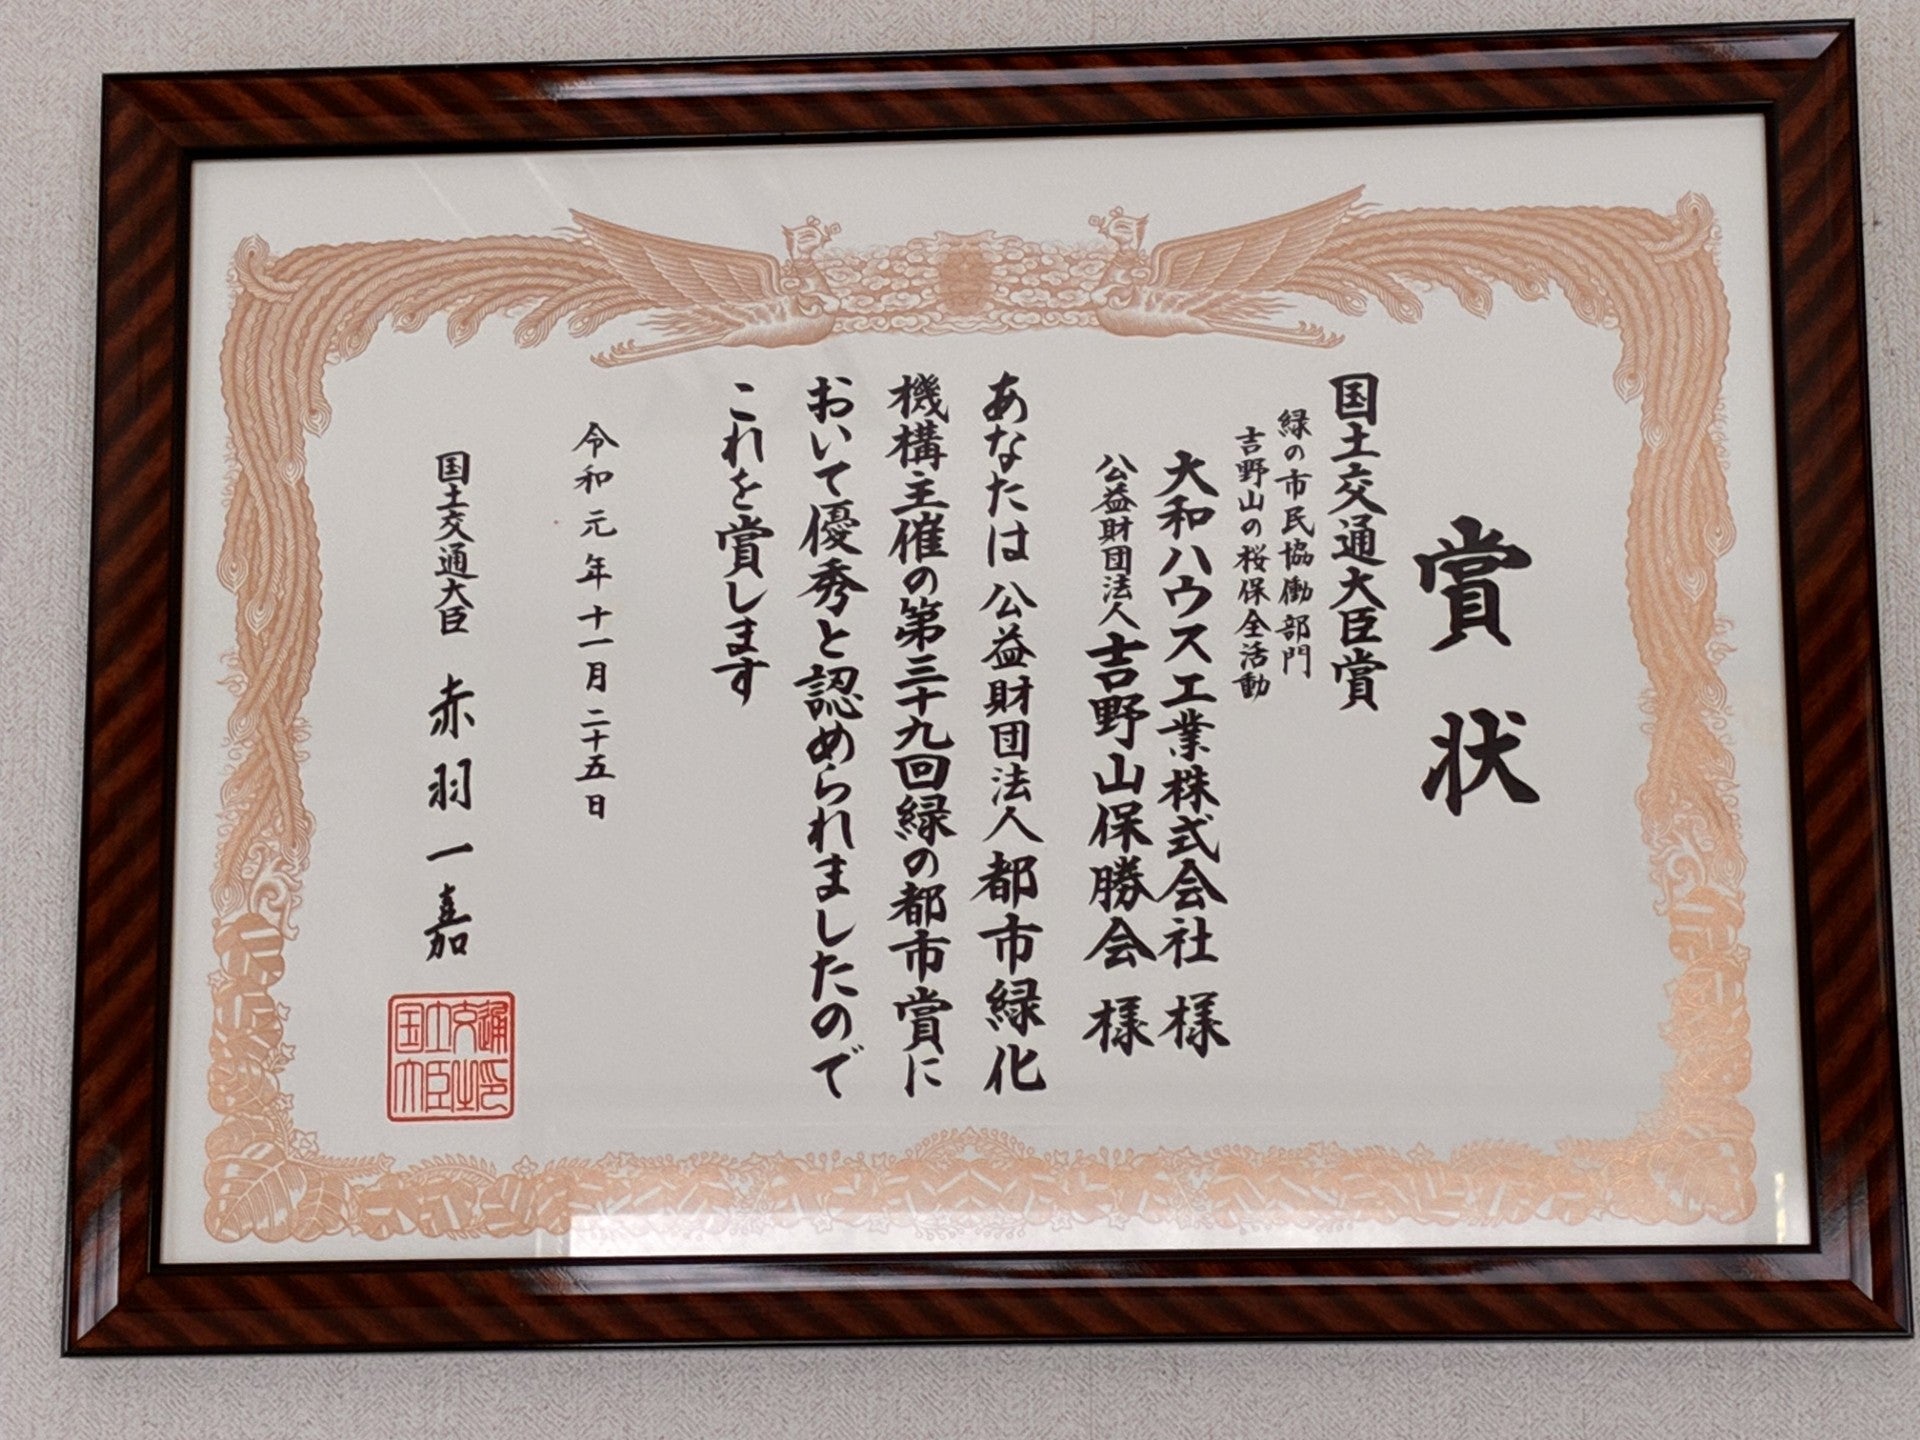 賞状
国土交通大臣賞
緑の市民協働部門
吉野山の桜保全活動
大和ハウス工業株式会社 様
公益財団法人吉野山保勝会 様
あなたは公益財団法人都市緑化
機構主催の第三十九回緑の都市賞に
おいて優秀と認められましたので
これを賞します
令和元年十一月二十五日
国土交通大臣 赤羽一嘉
国土交通大臣之印